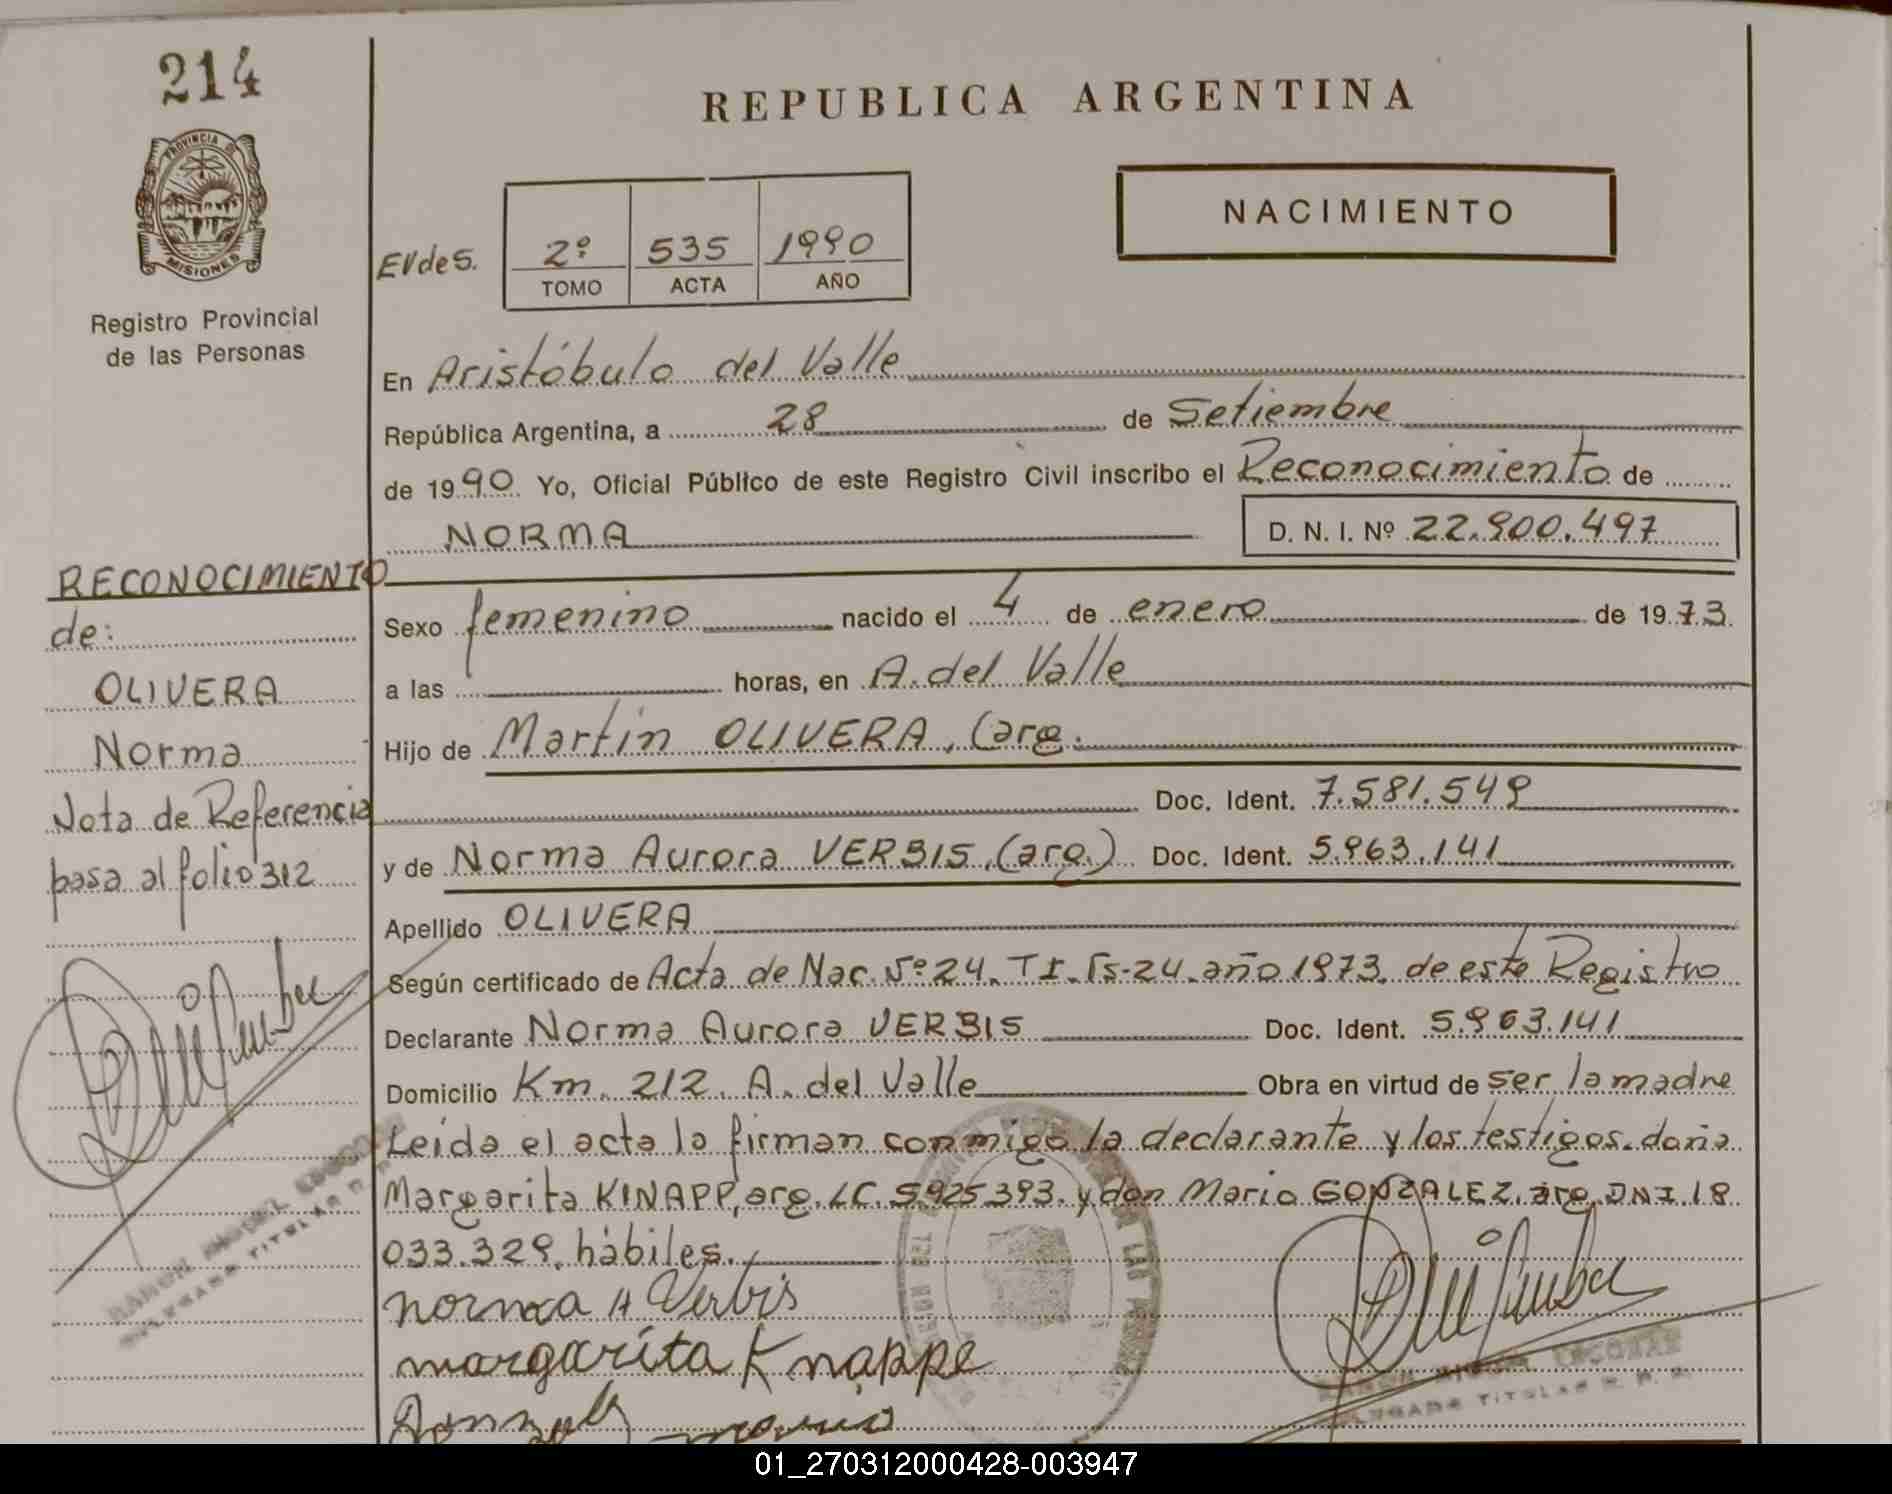 214
PROVINCIA DE
MISIONES
Registro Provincial
de las Personas
REPUBLICA ARGENTINA
NACIMIENTO
EVdes.
2º 535 1990
TOMO ACTA AÑO
En Aristóbulo del Valle
República Argentina, a 28 de Setiembre
de 1990. Yo, Oficial Público de este Registro Civil inscribo el Reconocimiento de
NORMA D. N. I. Nº 22.900.497
Sexo femenino nacido el 4 de enero de 1973.
a las horas, en A. del Valle
Hijo de Martin OLIVERA, (arg.
Doc. Ident. 7.581.549
y de Norma Aurora VERBIS, (arg.) Doc. Ident. 5.963.141
Apellido OLIVERA
Según certificado de Acta de Nac. Nº 24. TI. Fs-24. año 1973. de este Registro
Declarante Norma Aurora VERBIS Doc. Ident. 5.963.141
Domicilio Km. 212. A. del Valle Obra en virtud de ser la madre
Leída el acta la firman conmigo la declarante y los testigos. doña
Margarita KINAPP, arg. LC. 5925393. y don Mario GONZALEZ. arg. DNI 18
033.329. hábiles.
norma A Verbis
margarita Knappe
RECONOCIMIENTO
de:
OLIVERA
Norma
Nota de Referencia
pasa al folio 312
RAMON MIGUEL ESCOBAR
DELEGADO TITULAR R. P.
RAMON MIGUEL ESCOBAR
DELEGADO TITULAR R. P.
01_270312000428-003947